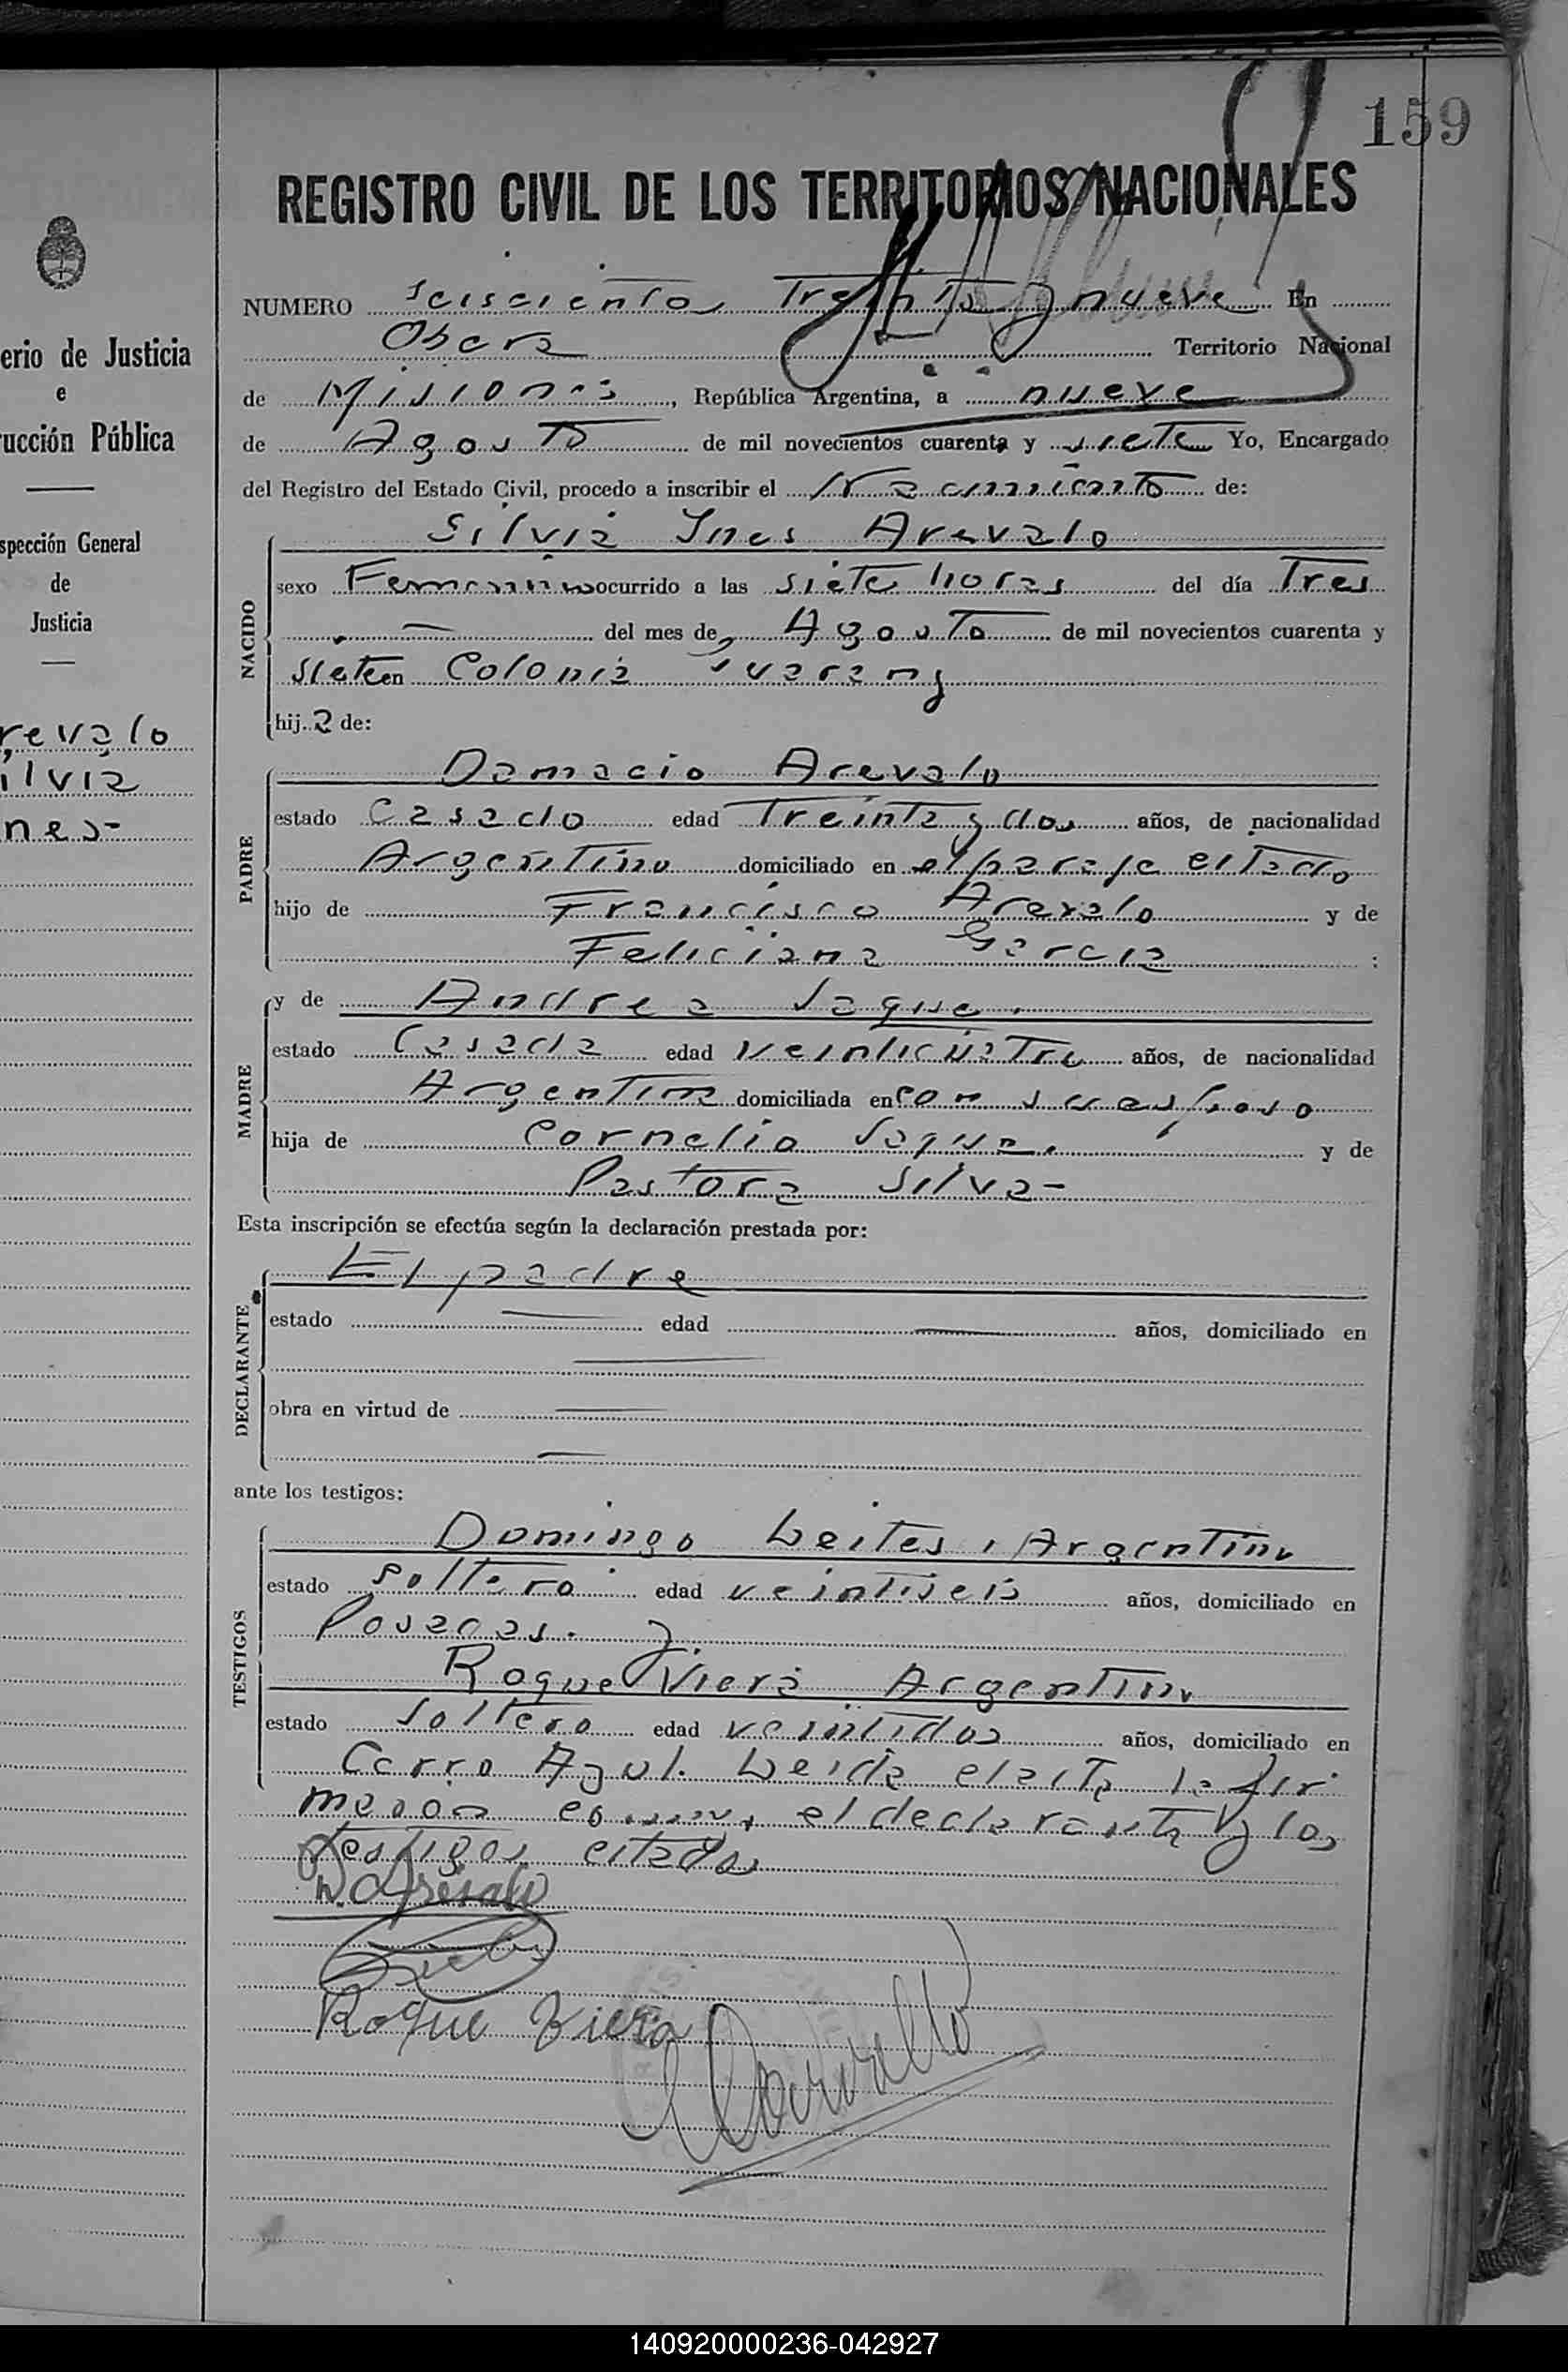 159
REGISTRO CIVIL DE LOS TERRITORIOS NACIONALES
NUMERO seiscientos Treinta y nueve En
Obera Territorio Nacional
de Misiones, República Argentina, a nueve
de Agosto de mil novecientos cuarenta y siete Yo, Encargado
del Registro del Estado Civil, procedo a inscribir el Nacimiento de:
NACIDO
Silvia Ines Arevalo
sexo Femenino ocurrido a las siete horas del día Tres
del mes de Agosto de mil novecientos cuarenta y
siete en Colonia Guarany
hija de:
PADRE
Damacio Arevalo
estado Casado edad Treinta y dos años, de nacionalidad
Argentino domiciliado en el paraje citado
hijo de Francisco Arevalo y de
Feliciana Garcia :
MADRE
y de Andrea
estado Casada edad veinticuatro años, de nacionalidad
Argentina domiciliada en con su esposo
hija de Cornelio y de
Pastora Silva-
Esta inscripción se efectúa según la declaración prestada por:
DECLARANTE
El padre
estado edad años, domiciliado en
obra en virtud de
ante los testigos:
TESTIGOS
Domingo Leites, Argentino
estado soltero edad veintiseis años, domiciliado en
Posadas. y.
Roque Viera Argentino
estado soltero edad veintidos años, domiciliado en
Cerro Azul. Leida el acta la fir
maron el declarante y los
testigos citados
D. Arevalo
Roque Viera
erio de Justicia
e
rucción Pública
spección General
de
Justicia
revalo
ilvia
nes-
140920000236-042927